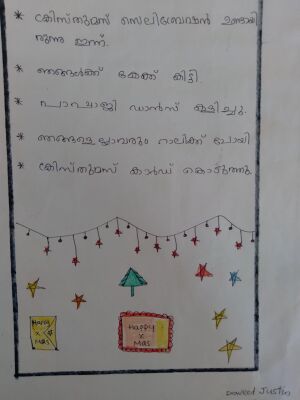 * ക്രിസ്തുമസ് സെലിബ്രേഷൻ ഉണ്ടായി
രുന്നു ഇന്ന്.
* ഞങ്ങൾക്ക് കേക്ക് കിട്ടി.
* പാപ്പാഞ്ഞി ഡാൻസ് കളിച്ചു.
* ഞങ്ങളെല്ലാവരും റാലിക്ക് പോയി
* ക്രിസ്തുമസ് കാർഡ് കൊടുത്തു.
Happy
X
Mas
Happy
X
Mas
Justin